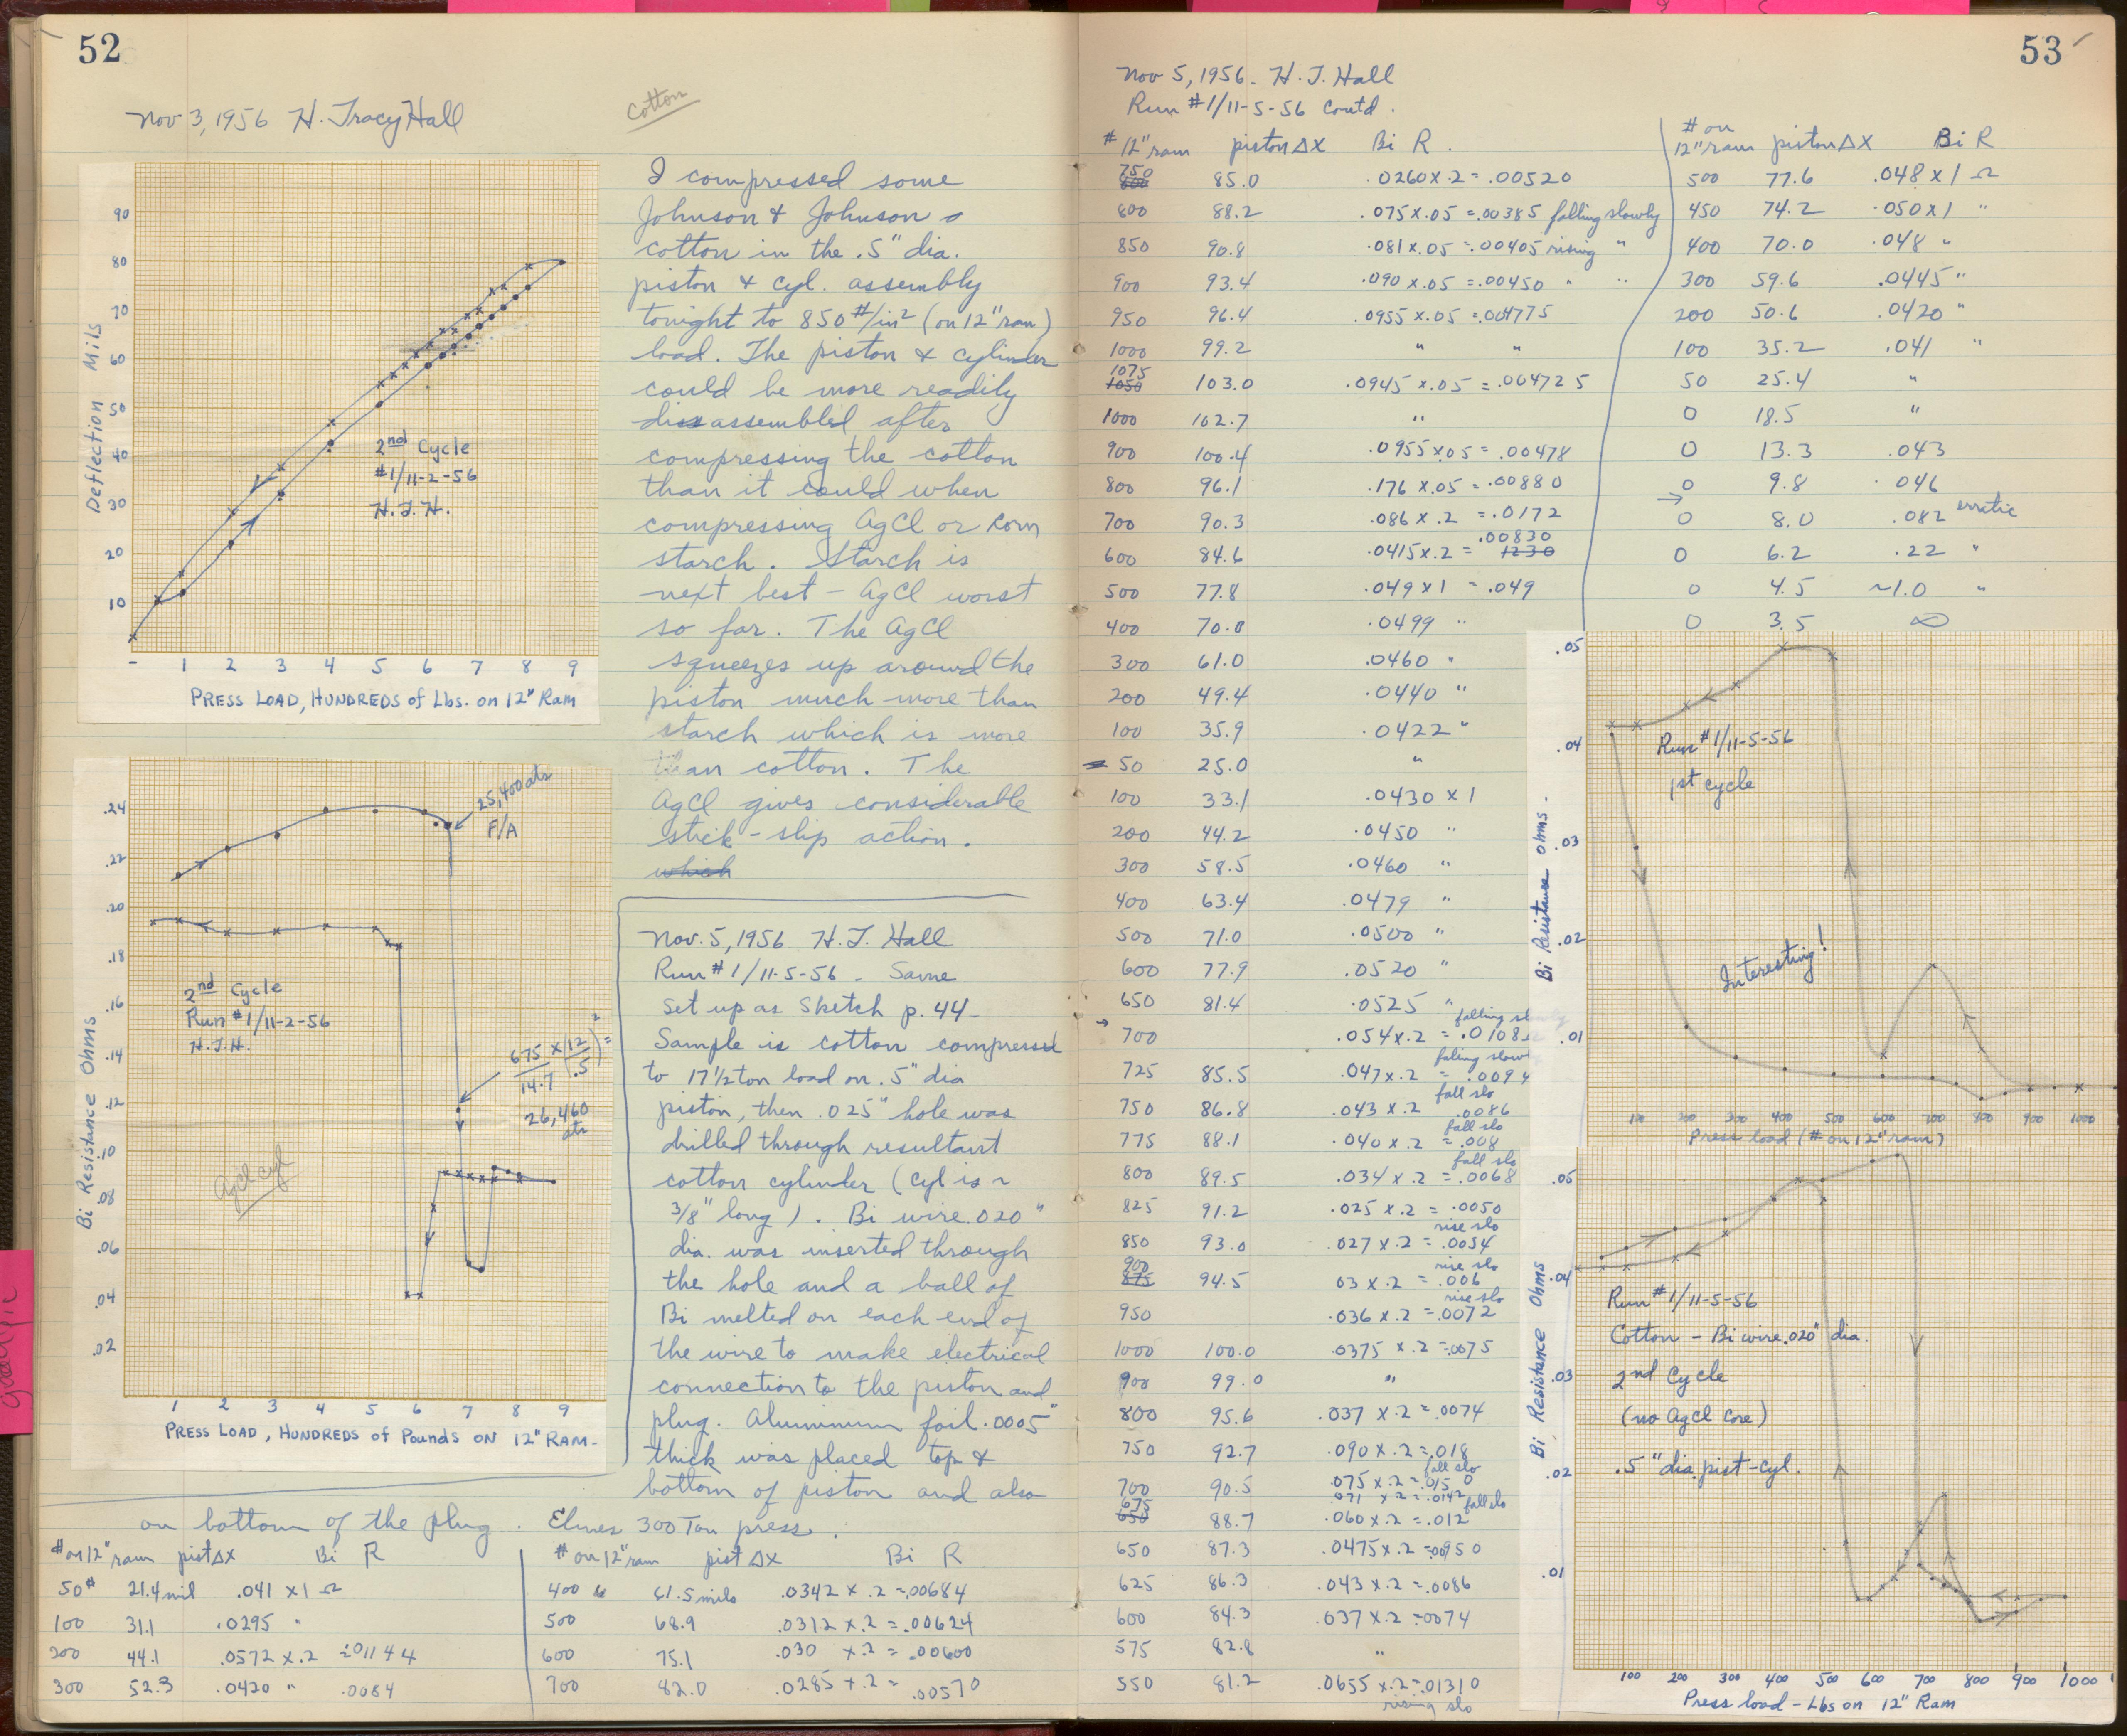 52
Nov 3, 1956 H. Tracy Hall
cotton
90
80
70
60
50
40
30
20
10
Deflection Mils
2nd Cycle
#1/11-2-56
H.T.H.
- 1 2 3 4 5 6 7 8 9
PRESS LOAD, HUNDREDS of Lbs. on 12" Ram
I compressed some
Johnson & Johnson
cotton in the .5" dia.
piston & cyl. assembly
tonight to 850 #/in2 (on 12" ram)
load. The piston & cylinder
could be more readily
disassembled after
compressing the cotton
than it could when
compressing AgCl or corn
starch. Starch is
next best - AgCl worst
so far. The AgCl
squeezes up around the
piston much more than
starch which is more
than cotton. The
AgCl gives considerable
stick-slip action.
which
.24
.22
.20
.18
.16
.14
.12
.10
.08
.06
.04
.02
Bi Resistance Ohms
25,400 ats
F/A
2nd Cycle
Run #1/11-2-56
H.T.H.
675/14.7 x (12/.5)2 =
26,460
ats
AgCl cyl
1 2 3 4 5 6 7 8 9
PRESS LOAD, HUNDREDS of Pounds ON 12" RAM-
Nov. 5, 1956 H. T. Hall
Run #1/11-5-56 - Same
set up as sketch p. 44 -
Sample is cotton compressed
to 17 1/2 ton load on .5" dia
piston, then .025" hole was
drilled through resultant
cotton cylinder (cyl is ~
3/8" long). Bi wire .020"
dia. was inserted through
the hole and a ball of
Bi melted on each end of
the wire to make electrical
connection to the piston and
plug. Aluminum foil .0005"
thick was placed top &
bottom of piston and also
on bottom of the plug. Elmes 300 Ton press.
# on 12" ram pist ΔX Bi R
50# 21.4 mil .041 x1 Ω
100 31.1 .0295 "
200 44.1 .0572 x .2 = .01144
300 52.3 .0420 " .0084
# on 12" ram pist ΔX Bi R
400 61.5 mils .0342 x .2 = .00684
500 68.9 .0312 x .2 = .00624
600 75.1 .030 x .2 = .00600
700 82.0 .0285 x .2 = .00570
53
Nov 5, 1956. H. T. Hall
Run #1/11-5-56 Contd.
# 12" ram piston ΔX Bi R.
750 85.0 .0260 x .2 = .00520
800 88.2 .075 x .05 = .00385 falling slowly
850 90.8 .081 x .05 = .00405 rising "
900 93.4 .090 x .05 = .00450 " "
950 96.4 .0955 x .05 = .004775
1000 99.2 " "
1075 1050 103.0 .0945 x .05 = .004725
1000 102.7 "
900 100.4 .0955 x 05 = .00478
800 96.1 .176 x .05 = .00880
700 90.3 .086 x .2 = .0172
600 84.6 .0415 x .2 = 1230 .00830
500 77.8 .049 x 1 = .049
400 70.0 .0499 "
300 61.0 .0460 "
200 49.4 .0440 "
100 35.9 .0422 "
50 25.0 "
100 33.1 .0430 x 1
200 44.2 .0450 "
300 58.5 .0460 "
400 63.4 .0479 "
500 71.0 .0500 "
600 77.9 .0520 "
650 81.4 .0525 "
700 .054 x .2 = .0108 falling slowly
725 85.5 .047 x .2 = .0094 faling slowl
750 86.8 .043 x .2 .0086 fall slo
775 88.1 .040 x .2 = .008 fall slo
800 89.5 .034 x .2 = .0068 fall slo
825 91.2 .025 x .2 = .0050
850 93.0 .027 x .2 = .0054 rise slo
900 875 94.5 03 x .2 = .006 rise slo
950 .036 x .2 = .0072 rise slo
1000 100.0 .0375 x .2 = .0075
900 99.0 "
800 95.6 .037 x .2 = .0074
750 92.7 .090 x .2 = .018
700 90.5 .075 x .2 = .0150 fall slo
.071 x .2 = .0142 fall slo
675 650 88.7 .060 x .2 = .012
650 87.3 .0475 x .2 = .00950
625 86.3 .043 x .2 = .0086
600 84.3 .037 x .2 = .0074
575 82.8 "
550 81.2 .0655 x .2 = .01310
rising slo
# on
12" ram piston ΔX Bi R
500 77.6 .048 x 1 Ω
450 74.2 .050 x 1 "
400 70.0 .048 "
300 59.6 .0445 "
200 50.6 .0420 "
100 35.2 .041 "
50 25.4 "
0 18.5 "
0 13.3 .043
0 9.8 .046
0 8.0 .082 erratic
0 6.2 .22 "
0 4.5 ~1.0 "
0 3.5 ∞
.05
.04
.03
.02
.01
Bi Resistance ohms -
Run #1/11-5-56
1st cycle
Interesting!
100 200 300 400 500 600 700 800 900 1000
Press load (# on 12" ram)
.05
.04
.03
.02
.01
Bi Resistance Ohms
Run #1/11-5-56
Cotton - Bi wire .020" dia.
2nd Cycle
(no AgCl core)
.5" dia. pist-cyl.
100 200 300 400 500 600 700 800 900 1000
Press load - Lbs on 12" Ram